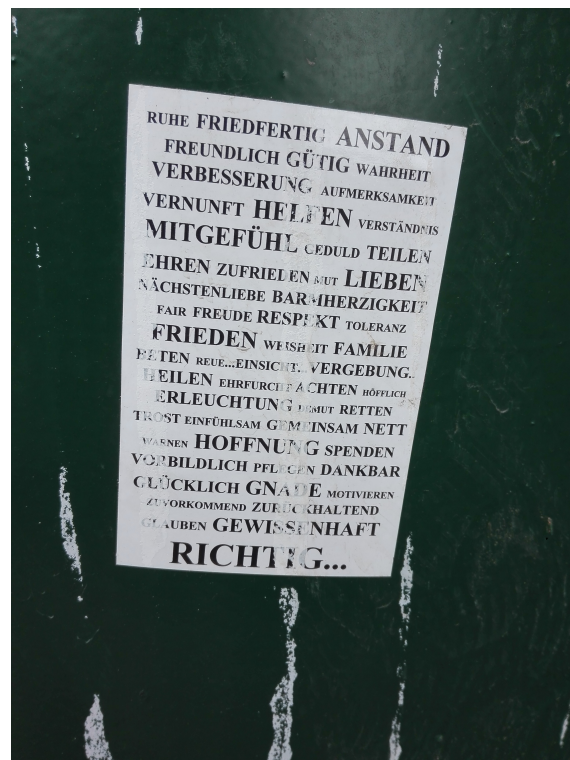 RUHE FRIEDFERTIG ANSTAND
FREUNDLICH GÜTIG WAHRHEIT
VERBESSERUNG AUFMERKSAMKEIT
VERNUNFT HELFEN VERSTÄNDNIS
MITGEFÜHL GEDULD TEILEN
EHREN ZUFRIEDEN MUT LIEBEN
NÄCHSTENLIEBE BARMHERZIGKEIT
FAIR FREUDE RESPEKT TOLERANZ
FRIEDEN WEISHEIT FAMILIE
BETEN REUE...EINSICHT...VERGEBUNG..
HEILEN EHRFURCHT ACHTEN HÖFFLICH
ERLEUCHTUNG DEMUT RETTEN
TROST EINFÜHLSAM GEMEINSAM NETT
WARNEN HOFFNUNG SPENDEN
VORBILDLICH PFLEGEN DANKBAR
GLÜCKLICH GNADE MOTIVIEREN
ZUVORKOMMEND ZURÜCKHALTEND
GLAUBEN GEWISSENHAFT
RICHTIG...